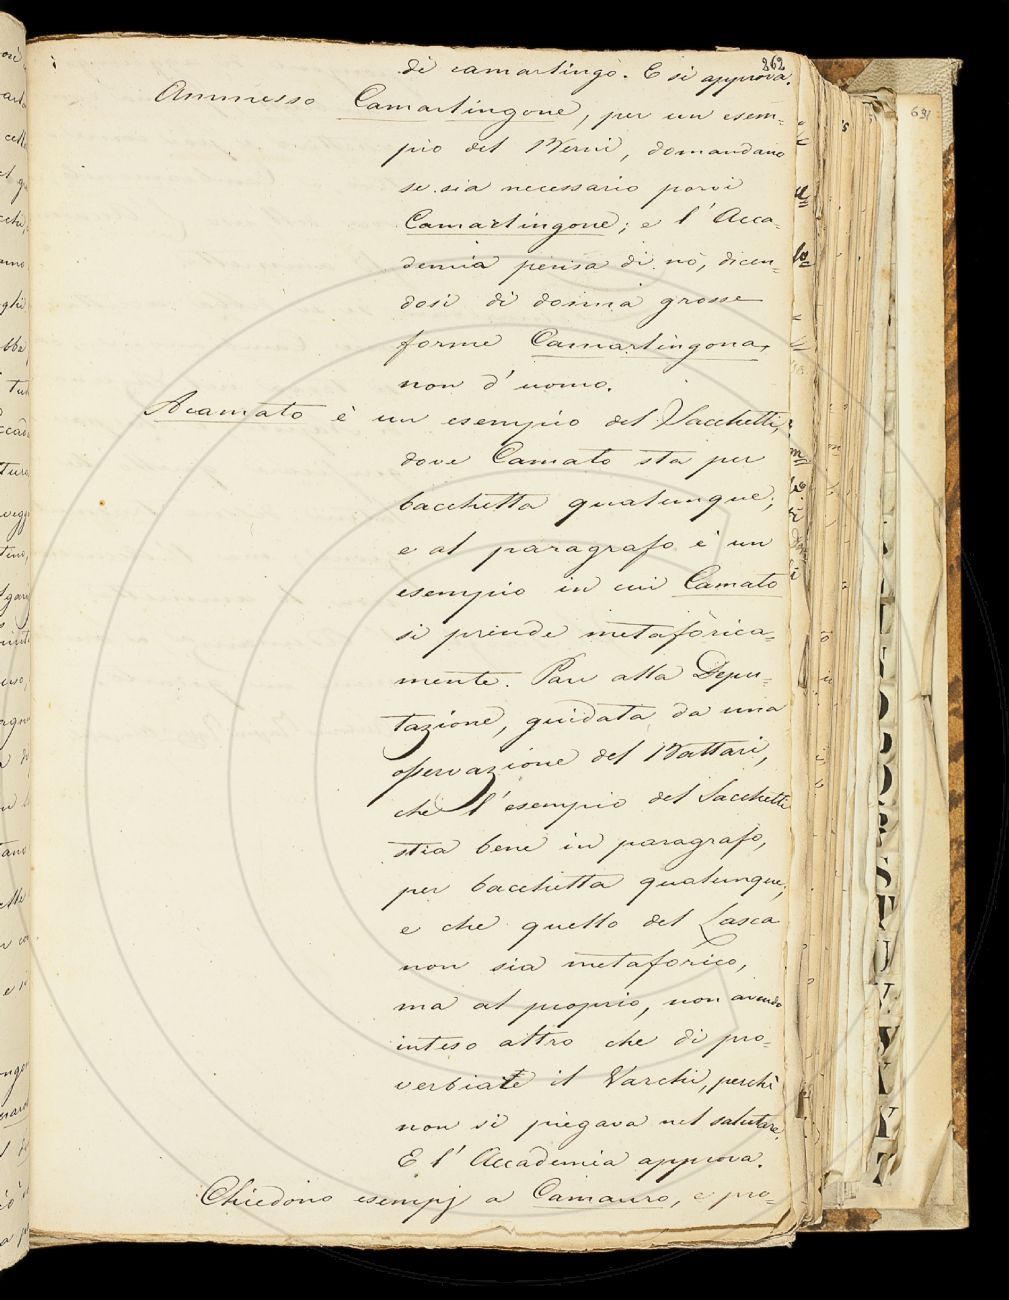 262
di camartingo. E si approva.
Ammesso Camartingone, per un esem=
pio del Berni, domandano
se sia necessario porvi
Camartingone; e l'Acca=
demia pensa di nò, dicen=
dosi di donna grosse
forme Camartingona,
non d'uomo.
A camato è un esempio del Sacchetti,
dove Camato sta per
bacchetta qualunque;
e al paragrafo è un
esempio in cui Camato
si prende metaforica=
mente. Pare alla Depu=
tazione, guidata da una
osservazione del Nattari,
che l'esempio del Sacchetti
stia bene in paragrafo,
per bacchetta qualunque;
e che quello del Lasca
non sia metaforico,
ma al proprio, non avendo
inteso altro che di pro=
verbiare il Varchi, perchè
non si piegava nel salutare.
E l'Accademia approva.
Chiedono esempj a Camauro, e pro=
631